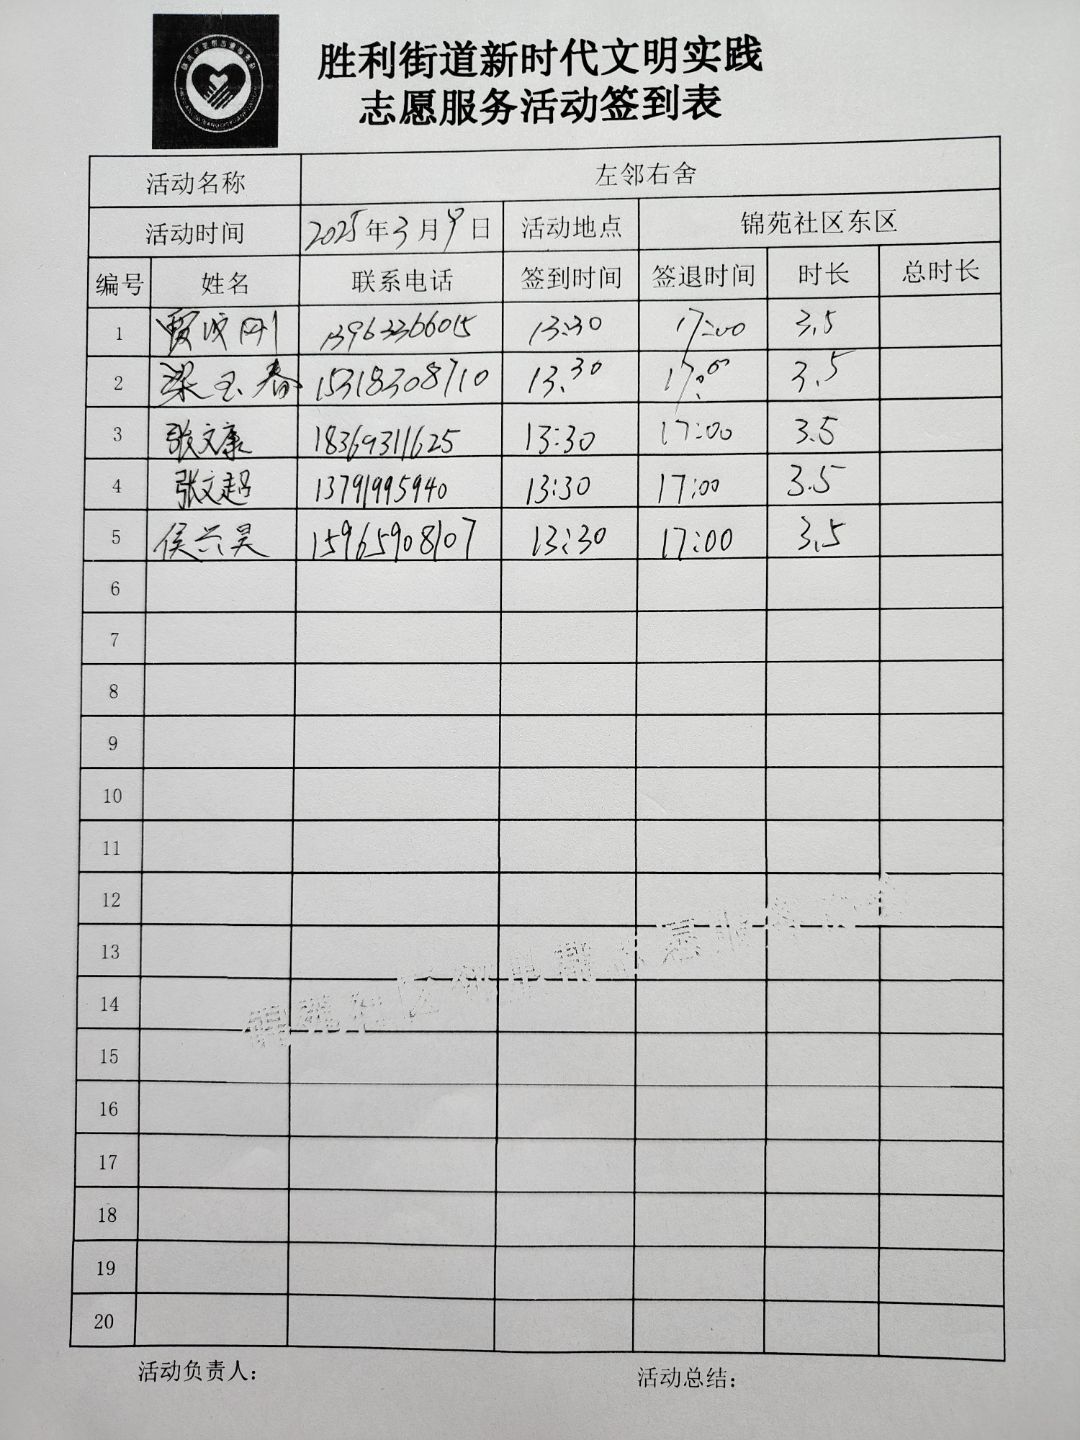 胜利街道新时代文明实践
志愿服务活动签到表
活动名称 左邻右舍
活动时间 2025年3月9日 活动地点 锦苑社区东区
编号 姓名 联系电话 签到时间 签退时间 时长 总时长
1 贾成刚 13963366015 13:30 17:00 3.5
2 梁玉春 15318308710 13.30 17:00 3.5
3 张文康 18369311625 13:30 17:00 3.5
4 张文超 13791995940 13:30 17:00 3.5
5 侯兴昊 15965908107 13:30 17:00 3.5
6
7
8
9
10
11
12
13
14
15
16
17
18
19
20
活动负责人: 活动总结: